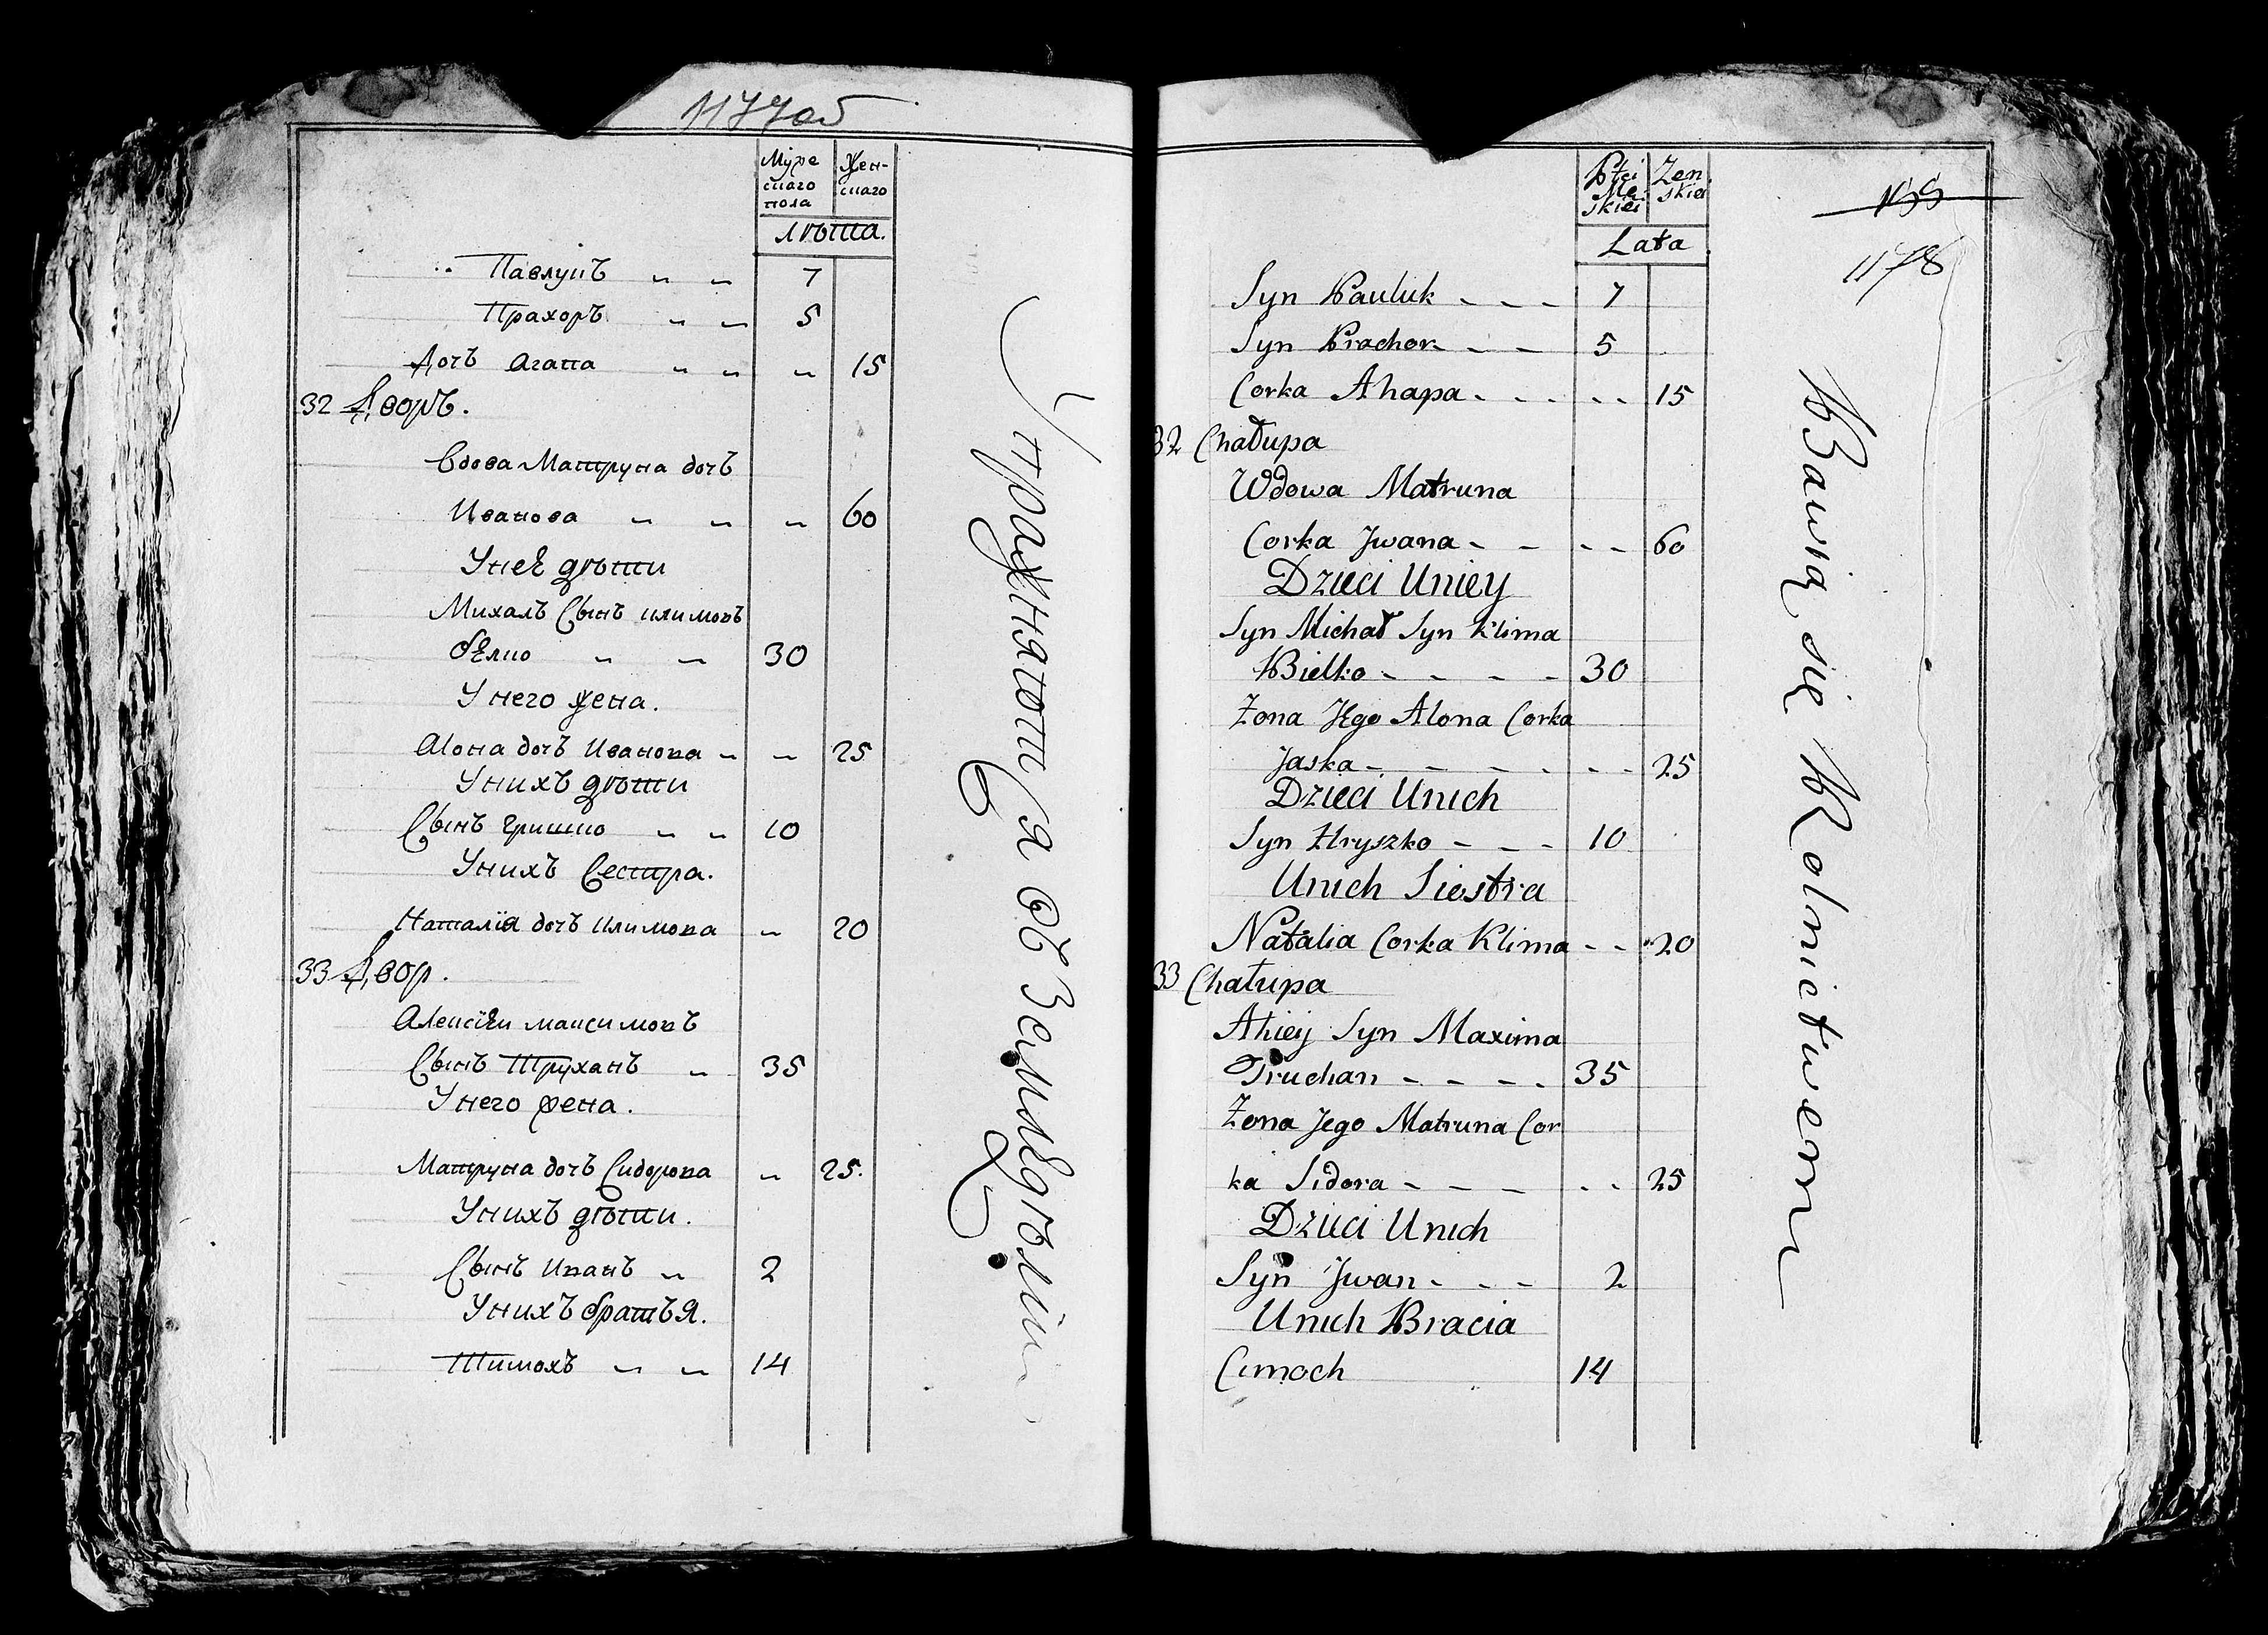 1177об
Муже
скаго
пола
Жен-
скаго
лѣта.
Павлукъ 7
Прахоръ 5
Дочь Агапа 15
32 Дворъ.
Вдова Матруна дочь
Иванова 60
У неѣ дѣти
Михалъ Сынъ Климовъ
бѣлко 30
У него жена.
Алона дочь Иванова 25
У нихъ дѣти
Сынъ Гришко 10
У нихъ Сестра.
Наталія дочь Климова 20
33 Двор.
Алексѣи максимовъ
Сынъ Труханъ 35
У него жена.
Матруна дочь Сидорова 25.
У нихъ дѣти.
Сынъ Иванъ 2
У нихъ братья.
Тимохъ 14
УпражняютСя въ Земледѣліи
Płci
Mę
skiei
Zen
skiei
Lata
1178
Syn Pauluk - - - 7
Syn Prachor - - 5
Corka Ahapa - - - - - 15
32 Chałupa
Wdowa Matruna
Corka Jwana - - - - 60
Dzieci Uniey
Syn Michał Syn Klima
Bielko - - - - 30
Zona Jego Alona Corka
Jaska - - - - - - - 25
Dzieci Unich
Syn Hryszko - - - 10
Unich Siostra
Natalia Corka Klima - - 20
33 Chałupa
Ahiey Syn Maxima
Truchan - - - - 35
Zona Jego Matruna Cor
ka Sidora - - - - - 25
Dzieci Unich
Syn Jwan - - - 2
Unich Bracia
Cimoch 14
Bawią się Rolnictwem